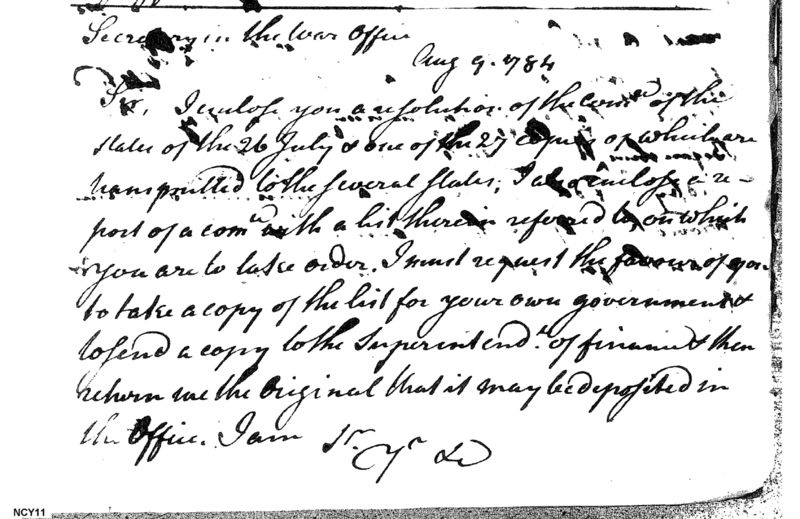 Secretary in the War Office
Aug 9. 1784
Sir, I enclose you a resolution of the comee of the
states of the 26 July & one of the 27 copies of which are
transmitted to the several states; I also enclose a re-
port of a comee with a list therein referred to, on which
you are to take order. I must request the favour of you
to take a copy of the list for your own government &
to send a copy to the Superintendt of finance & then
return me the Original that it may be deposited in
the Office. I am Sr. Yr &c
NCY11